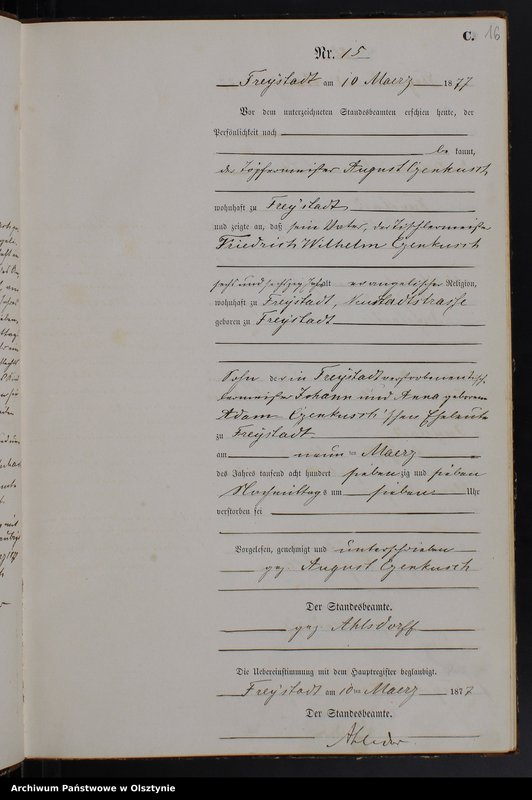 C. 16
Nr. 15
Freystadt am 10 Maerz 1877
Vor dem unterzeichneten Standesbeamten erschien heute, der
Persönlichkeit nach
be kannt,
der Töpfermeister August Czenkusch
wohnhaft zu Freystadt
und zeigte an, daß sein Vater, der Tischlermeister
Friedrich Wilhelm Czenkusch
sechs und sechszig Jahr alt evangelischer Religion,
wohnhaft zu Freystadt, Neustadtstrasse
geboren zu Freystadt
Sohn der in Freystadt verstorbenen Tisch-
lermeister Johann und Anna geborene
Adam Czenkusch'schen Eheleute
zu Freystadt
am neun ten Maerz
des Jahres tausend acht hundert sieben zig und sieben
Nachmittags um sieben Uhr
verstorben sei
Vorgelesen, genehmigt und unterschrieben
gez. August Czenkusch
Der Standesbeamte.
gez. Ahlsdorff
Die Uebereinstimmung mit dem Hauptregister beglaubigt.
Freystadt am 10ten Maerz 1877
Der Standesbeamte.
Archiwum Państwowe w Olsztynie